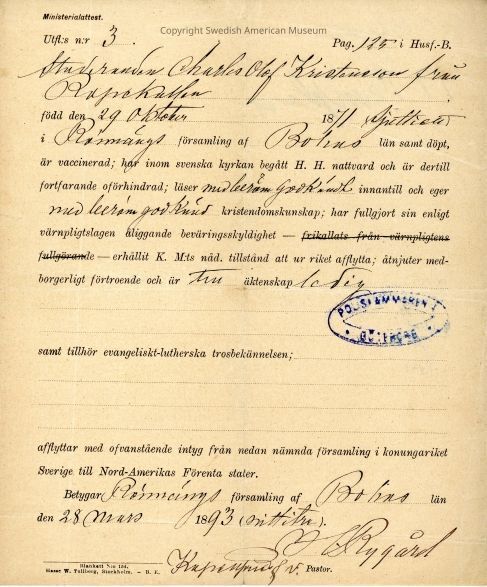 Ministerialattest.
Copyright Swedish American Museum
Utfl:s n:r 3. Pag. 125 i Husf.-B.
Studeranden Charles Olof Kristenson från
född den 29 Oktober 1871
i Römängs församling af Bohus län samt döpt,
är vaccinerad; har inom svenska kyrkan begått H. H. nattvard och är dertill
fortfarande oförhindrad; läser med beröm godkändt innantill och eger
med beröm godkänd kristendomskunskap; har fullgjort sin enligt
värnpligtslagen åliggande beväringsskyldighet — frikallats från värnpligtens
fullgörande — erhållit K. M:ts nåd. tillstånd att ur riket afflytta; åtnjuter med-
borgerligt förtroende och är till äktenskap ledig
POLISKAMMAREN I
GÖTEBORG
samt tillhör evangeliskt-lutherska trosbekännelsen;
afflyttar med ofvanstående intyg från nedan nämnda församling i konungariket
Sverige till Nord-Amerikas Förenta stater.
Betygar Römängs församling af Bohus län
den 28 Mars 1893 (nittitre).
Rygård
v. Pastor.
Blankett N:o 154.
W. Tullberg, Stockholm. – B. E.